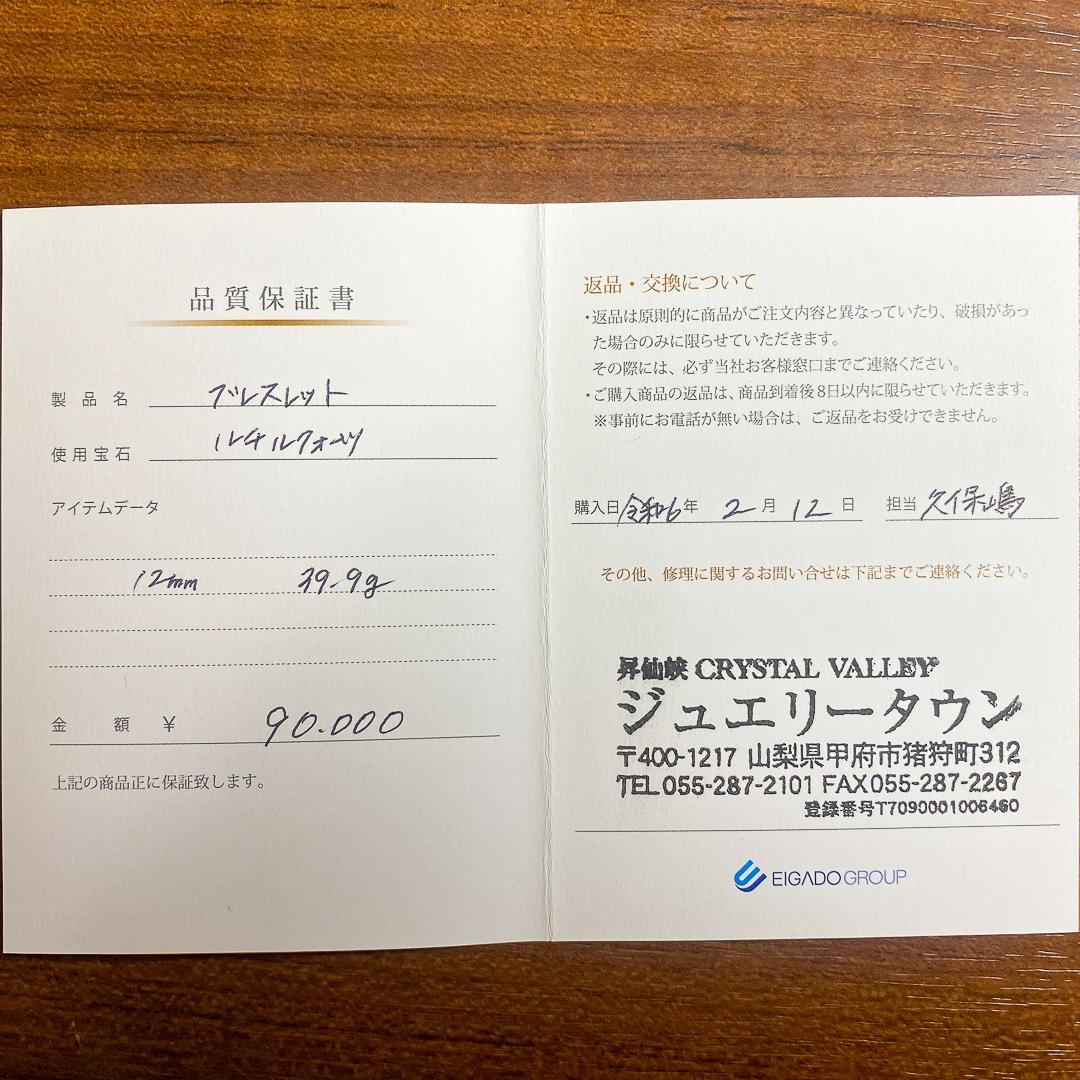 品質保証書
製品名 ブレスレット
使用宝石 ルチルクォーツ
アイテムデータ
12mm 39.9g
金額 ¥ 90.000
上記の商品正に保証致します。
返品・交換について
・返品は原則的に商品がご注文内容と異なっていたり、破損があっ
た場合のみに限らせていただきます。
その際には、必ず当社お客様窓口までご連絡ください。
・ご購入商品の返品は、商品到着後8日以内に限らせていただきます。
※事前にお電話が無い場合は、ご返品をお受けできません。
購入日 令和6年 2月 12日 担当 久保嶋
その他、修理に関するお問い合せは下記までご連絡ください。
昇仙峡 CRYSTAL VALLEY®
ジュエリータウン
〒400-1217 山梨県甲府市猪狩町312
TEL 055-287-2101 FAX 055-287-2267
登録番号T7090001006460
EIGADO GROUP